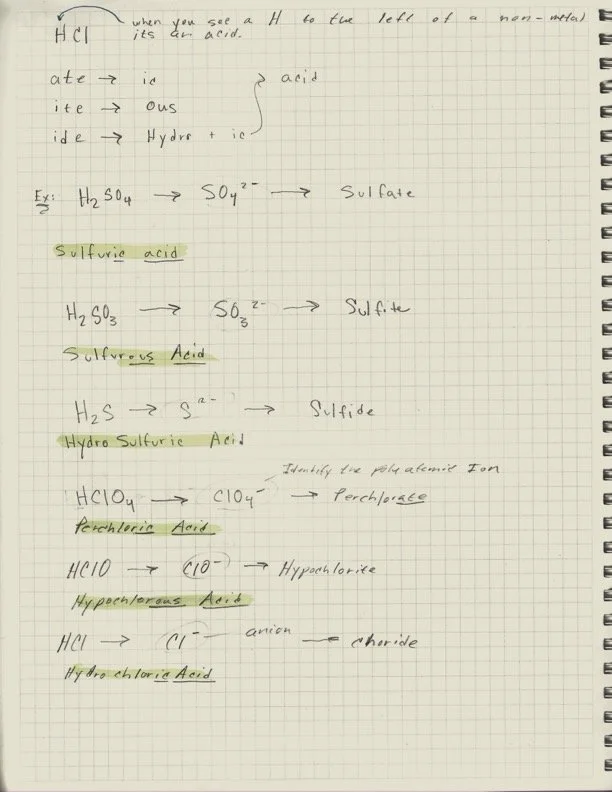 when you see a H to the left of a non-metal
HCl its an acid.
ate → ic acid
ite → ous
ide → Hydro + ic
Ex: H₂SO₄ → SO₄²⁻ → Sulfate
Sulfuric acid
H₂SO₃ → SO₃²⁻ → Sulfite
Sulfurous Acid
H₂S → S²⁻ → Sulfide
Hydro Sulfuric Acid
Identify the poly atomic Ion
HClO₄ → ClO₄⁻ → Perchlorate
Perchloric Acid
HClO → ClO⁻ → Hypochlorite
Hypochlorous Acid
HCl → Cl⁻ anion → choride
Hydro chloric Acid